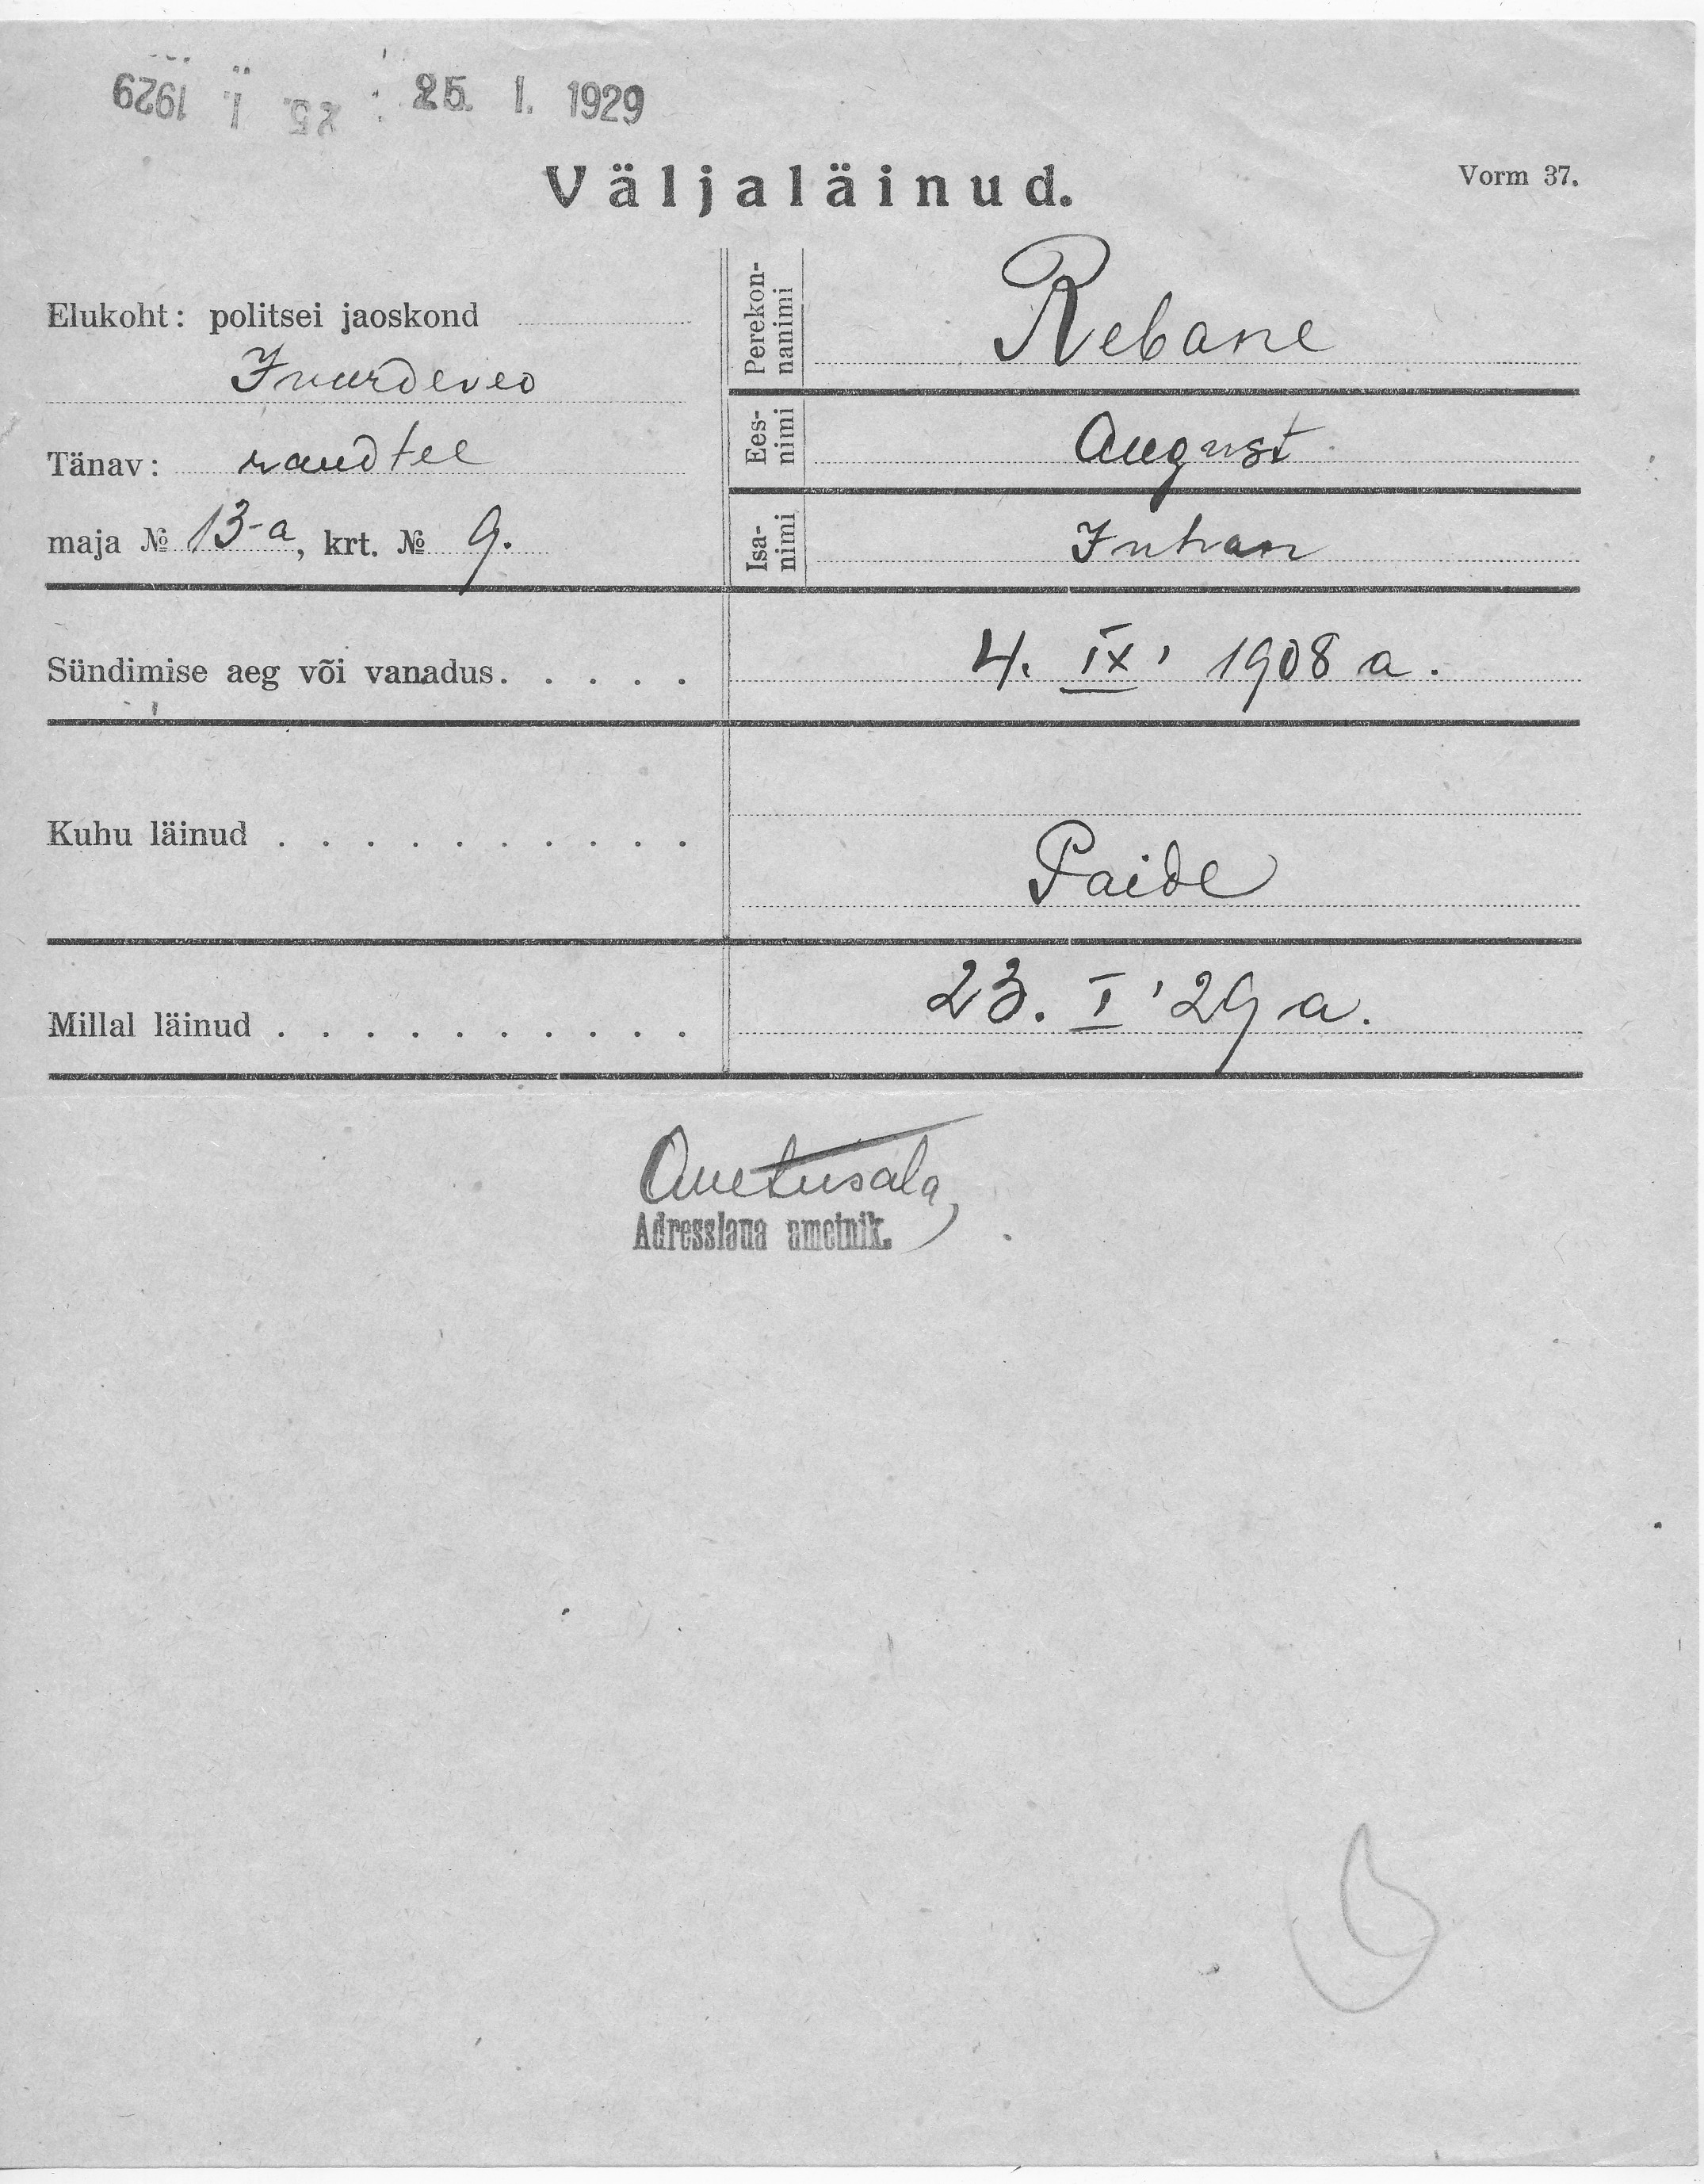 25. 1. 1929 25. 1. 1929
Väljaläinud.
Vorm 37.
Elukoht: politsei jaoskond
Juurdeveo
Tänav: raudtee
maja № 13-a, krt. № 9.
Perekon-
nanimi
Rebane
Ees-
nimi
August
Isa-
nimi
Juhan
Sündimise aeg või vanadus. 4. IX' 1908 a.
Kuhu läinud
Paide
Millal läinud 23. I '29 a.
Adresslaua ametnik.